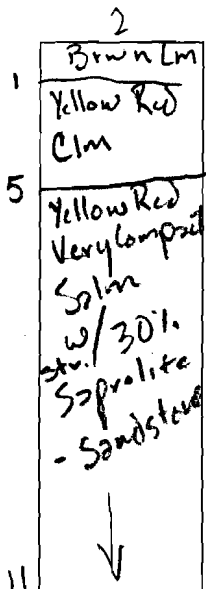 2
Brwn Lm
1
Yellow Red
Clm
5
Yellow Red
Very Compact
Salm
w/ 30%
str.
Saprolite
- Sandstone
11